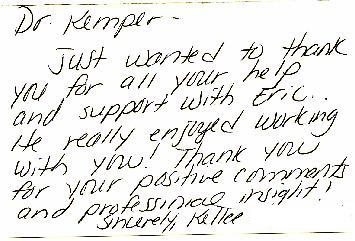 Dr. Kemper-
Just wanted to thank
you for all your help
and support with Eric..
He really enjoyed working
with you! Thank you
for your positive comments
and professinial insight!
Sincerely, Kellee